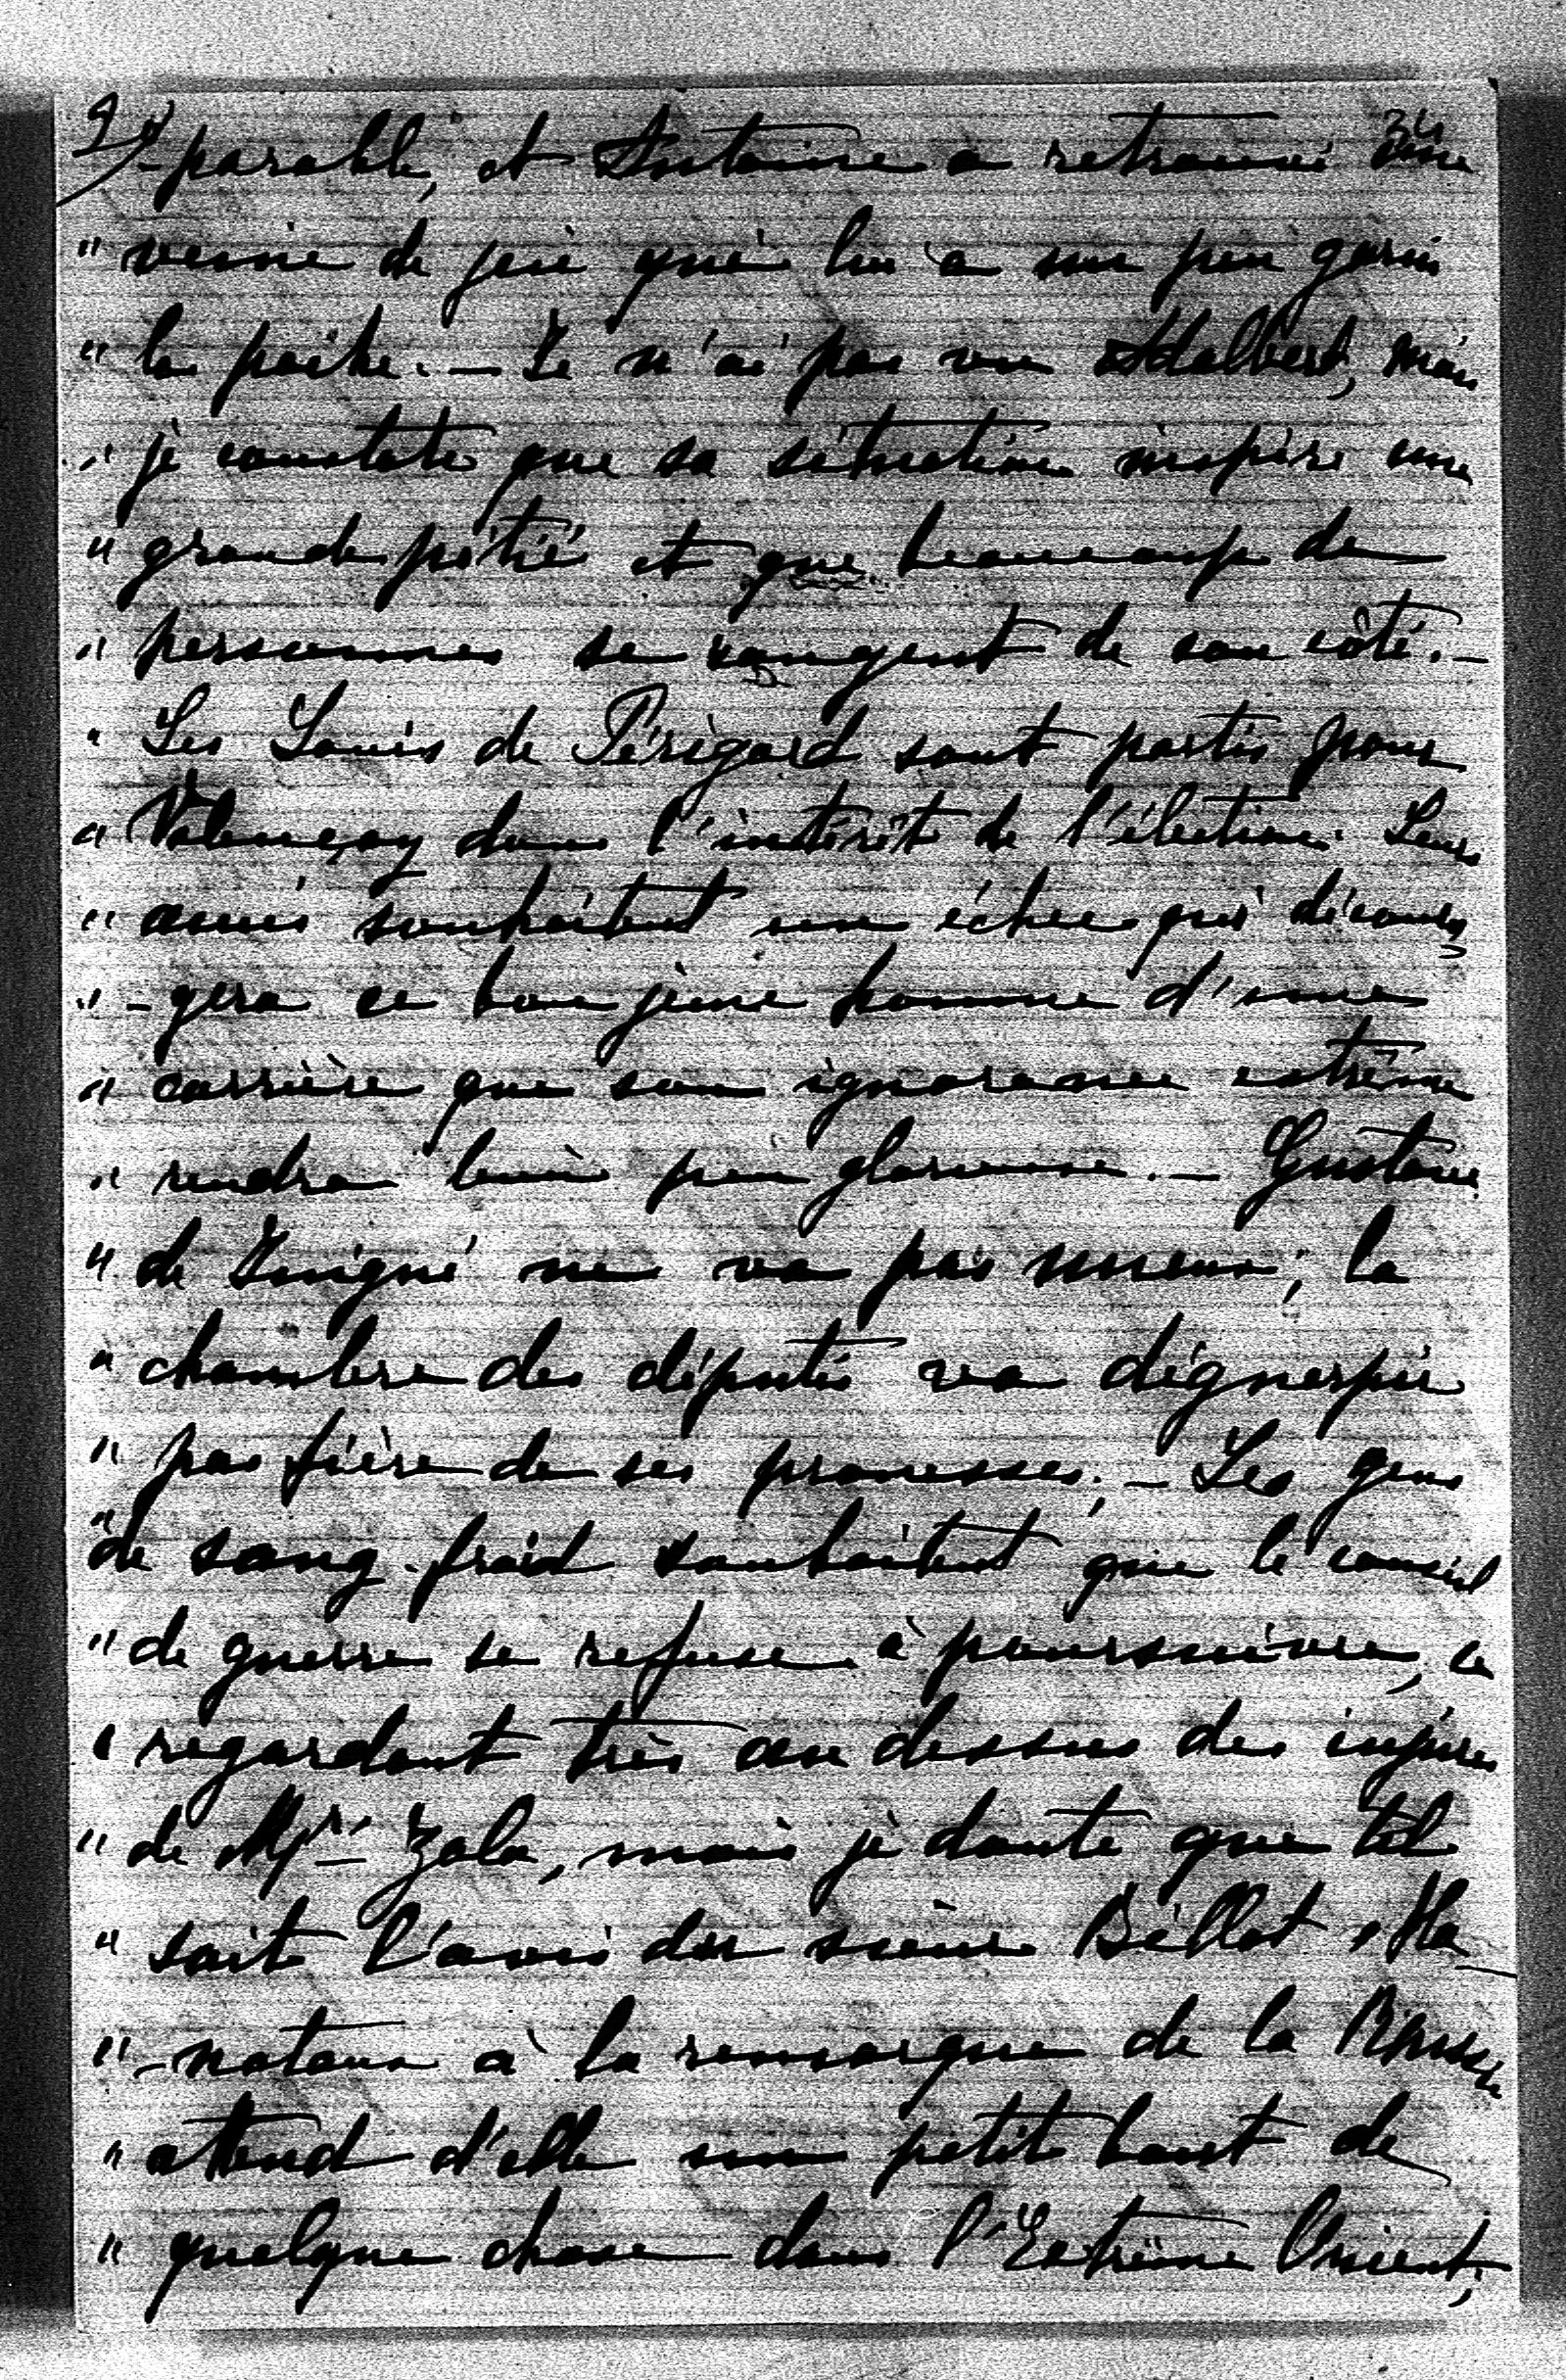 34
-parable, et Antoine a retrouvé une
" veine de jeu qui lui a un peu garni
" la poche. — Je n'ai pas vu Adalbert, mais
" je constate que sa situation inspire une
" grande pitié et que beaucoup de
" personnes se rangent de son côté. —
" Les Louis de Périgord sont partis pour
" Valençay dans l'intérêt de l'élection. Leurs
" amis souhaitent un échec qui découra
" -gera ce bon jeune homme d'une
" carrière que son ignorance extrême
" rendra bien peu glorieuse. — Gustave
" de Juigné ne va pas mieux; la
" chambre des députés va déguerpir
" pas fière de ses prouesses; — Les gens
" de sang-froid souhaitent que le conseil
" de guerre se refuse à poursuivre, se
" regardant très au dessus des injures
" de Mr Zola, mais je doute que tel
" soit l'avis du sieur Billot. Ha
" -notaux à la remorque de la Russie
" attend d'elle un petit bout de
" quelque chose dans l'Extrême Orient;